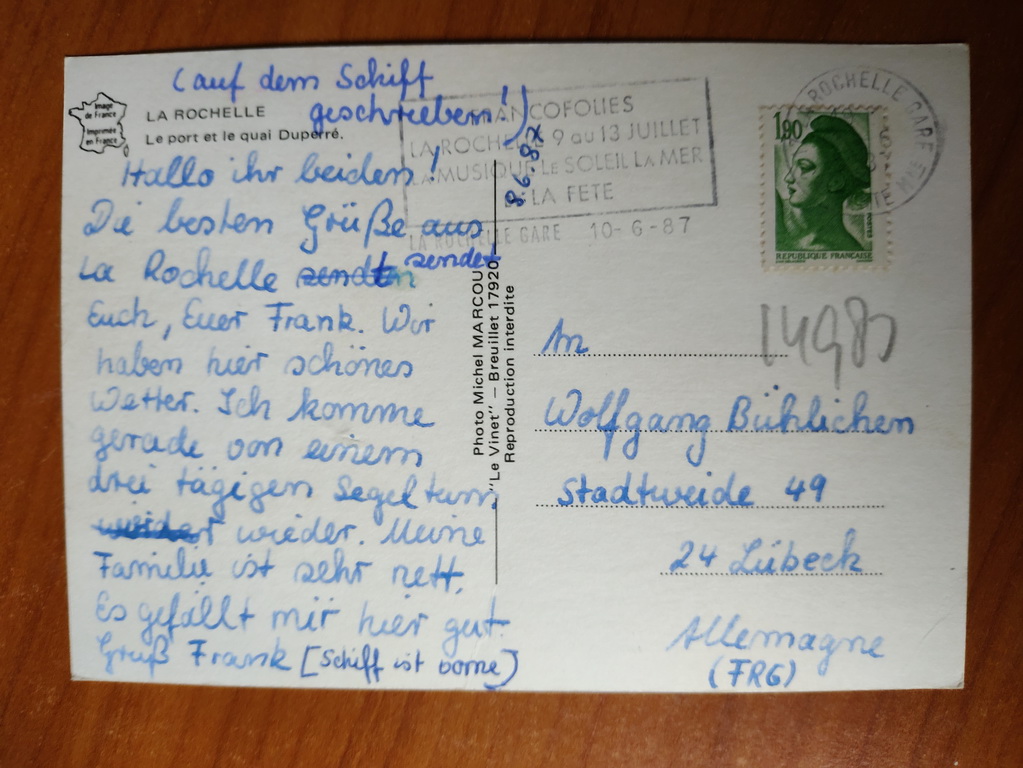 (auf dem Schiff
geschrieben!)
Image
de France
Imprimée
en France
LA ROCHELLE
Le port et le quai Duperré.
Hallo ihr beiden!
8.6.87
Die besten Grüße aus
La Rochelle sendet
Euch, Euer Frank. Wir
haben hier schönes
Wetter. Ich komme
gerade von einem
drei tägigen Segelturn
wieder. Meine
Familie ist sehr nett.
Es gefällt mir hier gut.
Gruß Frank [Schiff ist vorne]
FRANCOFOLIES
LA ROCHELLE 9 au 13 JUILLET
LA MUSIQUE LE SOLEIL LA MER
LA FETE
LA ROCHELLE GARE 10-6-87
Photo Michel MARCOU
"Le Vinet" – Breuillet 17920
Reproduction interdite
LA ROCHELLE GARE
1,90
REPUBLIQUE FRANÇAISE
14983
An
Wolfgang Bühlichen
Stadtweide 49
24 Lübeck
Allemagne
(FRG)